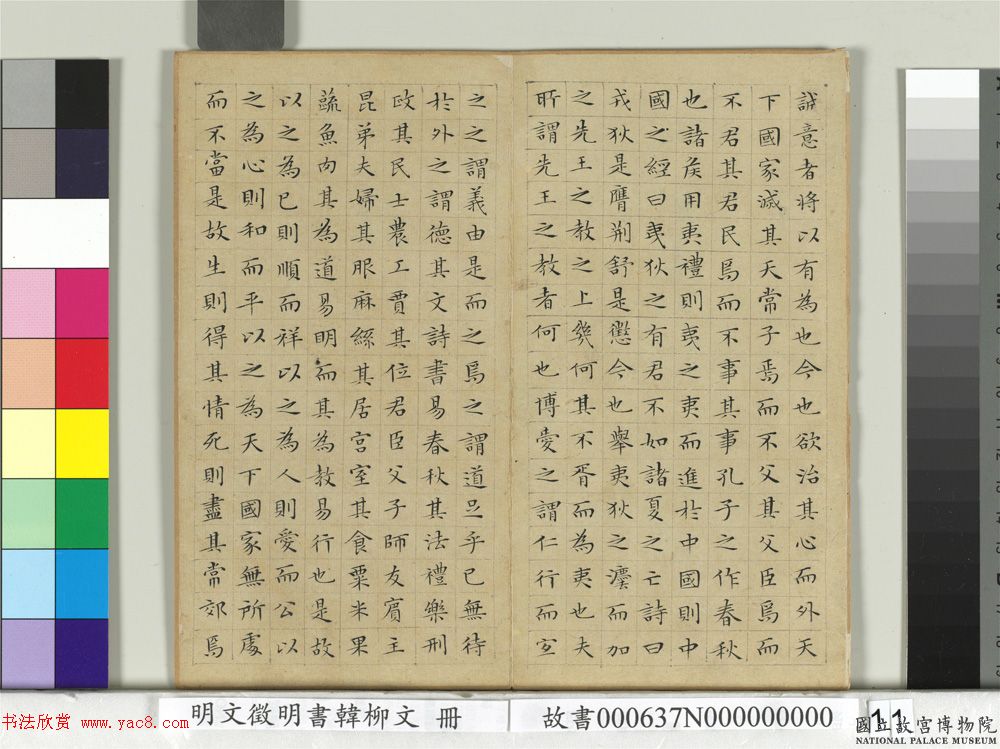 誠意者將以有為也今也欲治其心而外天
下國家滅其天常子焉而不父其父臣焉而
不君其君民焉而不事其事孔子之作春秋
也諸矦用夷禮則夷之夷而進於中國則中
國之經曰夷狄之有君不如諸夏之亡詩曰
戎狄是膺荆舒是懲今也舉夷狄之灋而加
之先王之教之上幾何其不胥而為夷也夫
所謂先王之教者何也博愛之謂仁行而宜
之之謂義由是而之焉之謂道足乎已無待
於外之謂德其文詩書易春秋其法禮樂刑
政其民士農工賈其位君臣父子師友賓主
昆弟夫婦其服麻絲其居宫室其食粟米果
蔬魚肉其為道易明而其為教易行也是故
以之為已則順而祥以之為人則愛而公以
之為心則和而平以之為天下國家無所處
而不當是故生則得其情死則盡其常郊焉
明文徵明書韓柳文 冊
故書000637N000000000
11
國立故宮博物院
NATIONAL PALACE MUSEUM
书法欣赏 www.yac8.com